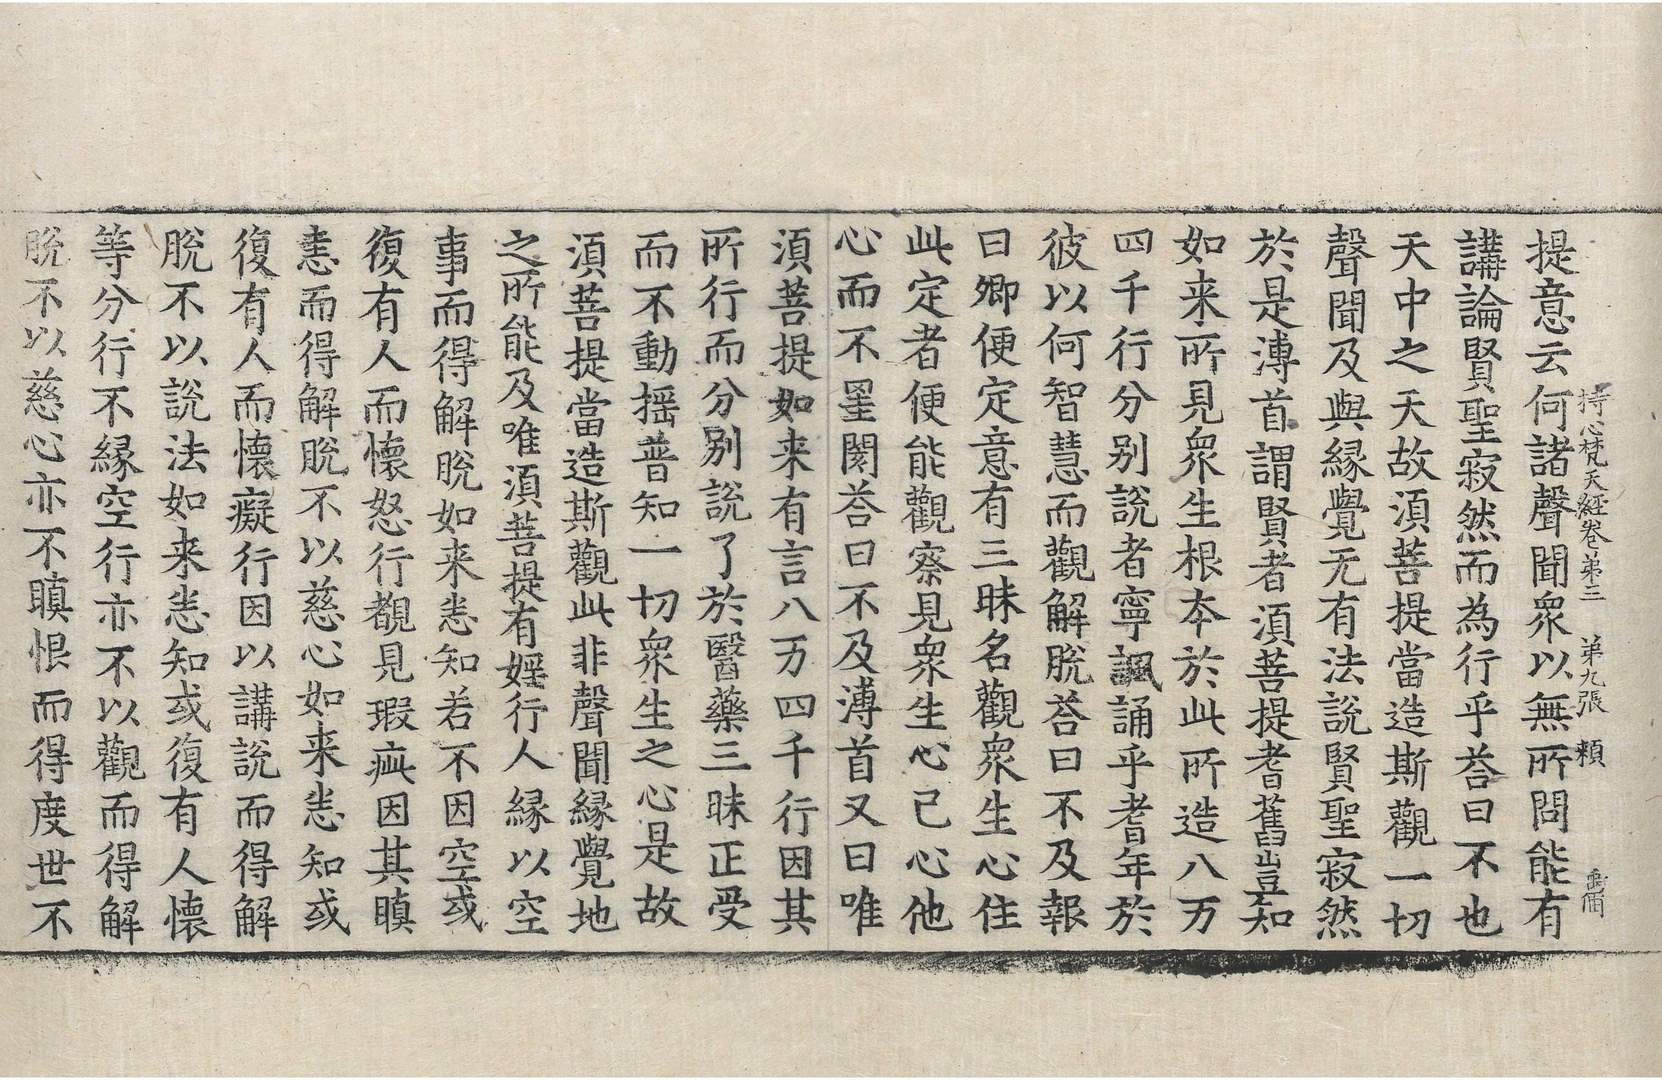 持心梵天經卷苐三 苐九張 頼
提意云何諸聲聞衆以無所問能有
講論賢聖寂然而為行乎荅曰不也
天中之天故湏菩提當造斯觀一切
聲聞及與縁覺无有法說賢聖寂然
於是溥首謂賢者湏菩提耆舊豈知
如来所見衆生根本於此所造八万
四千行分别說者寧諷誦乎耆年於
彼以何智慧而觀解脫荅曰不及報
曰卿便定意有三昧名觀衆生心住
此定者便能觀察見衆生心己心他
心而不罣閡荅曰不及溥首又曰唯
湏菩提如来有言八万四千行因其
所行而分别說了於醫藥三昧正受
而不動揺普知一切衆生之心是故
湏菩提當造斯觀此非聲聞縁覺地
之所能及唯湏菩提有婬行人縁以空
事而得解脫如来恙知若不因空或
復有人而懷怒行覩見瑕疵因其瞋
恚而得解脫不以慈心如来恙知或
復有人而懷癡行因以講說而得解
脫不以説法如来恙知或復有人懷
等分行不縁空行亦不以觀而得解
脫不以慈心亦不瞋恨而得度世不